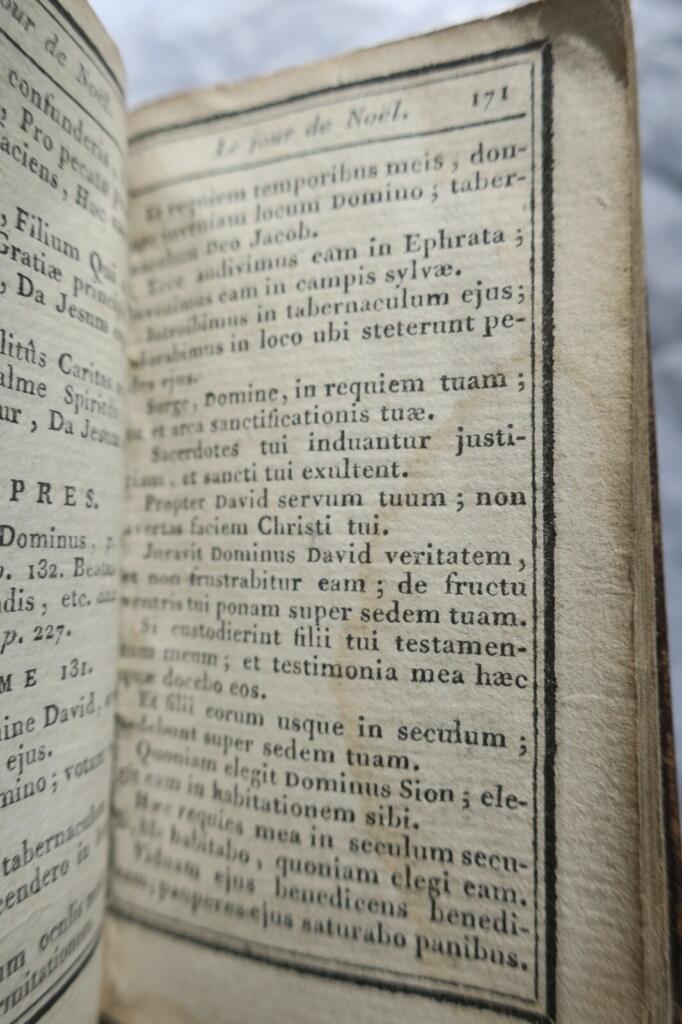 our de Noël.
confunderis
, Pro pecato
aciens, Hoc
, Filium Qui
Gratiæ princi
, Da Jesum
litûs Caritas
alme Spirit
ur, Da Jesu
PRES.
Dominus, p.
p. 132. Beat
dis, etc.
p. 227.
ME 131.
ine David,
ejus.
mino; votum
tabernacul
cendero in
um oculis
rmitationem
Le jour de Noël. 171
Et requiem temporibus meis, don-
inveniam locum Domino; taber-
Deo Jacob.
Ecce audivimus eam in Ephrata;
invenimus eam in campis sylvæ.
Introibimus in tabernaculum ejus;
adorabimus in loco ubi steterunt pe-
des ejus.
Surge, Domine, in requiem tuam;
tu, et arca sanctificationis tuæ.
Sacerdotes tui induantur justi-
tiam, et sancti tui exultent.
Propter David servum tuum; non
avertas faciem Christi tui.
Juravit Dominus David veritatem,
et non frustrabitur eam; de fructu
ventris tui ponam super sedem tuam.
Si custodierint filii tui testamen-
tum meum; et testimonia mea hæc
quæ docebo eos.
Et filii eorum usque in seculum;
sedebunt super sedem tuam.
Quoniam elegit Dominus Sion; ele-
git eam in habitationem sibi.
Hæc requies mea in seculum secu-
li, hîc habitabo, quoniam elegi eam.
Viduam ejus benedicens benedi-
cam; pauperes ejus saturabo panibus.